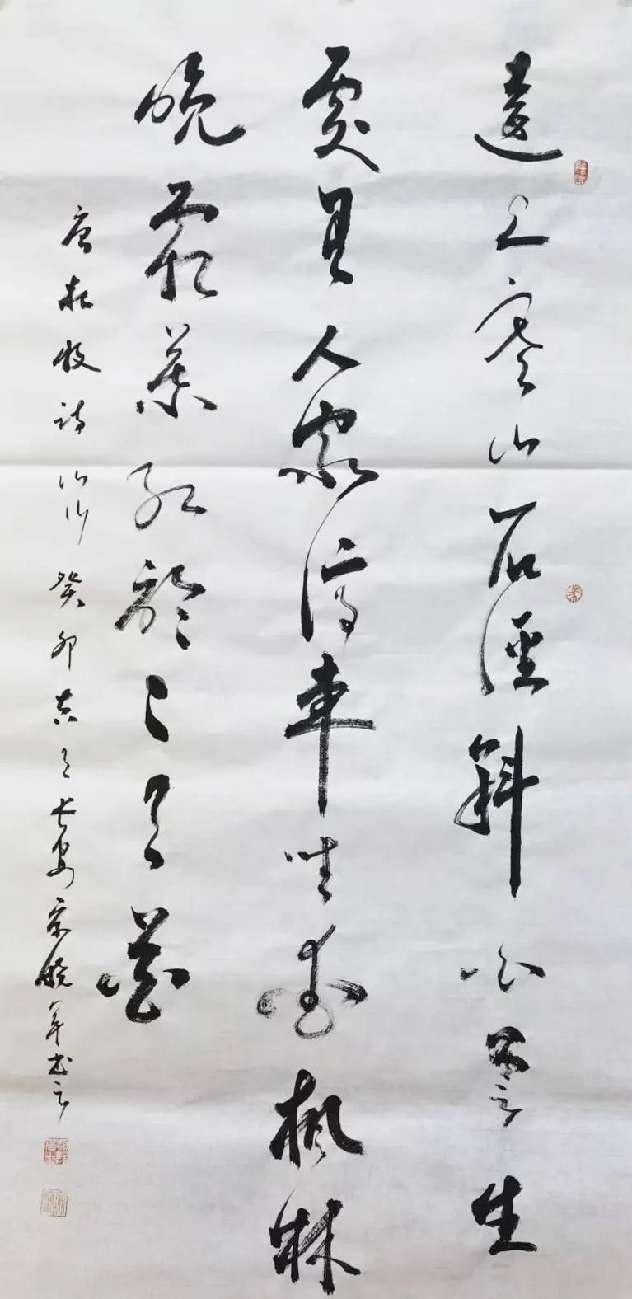 遠上寒山石徑斜白雲生
處有人家停車坐愛楓林
晚霜葉紅於二月花
唐杜牧诗山行癸卯吉月长安